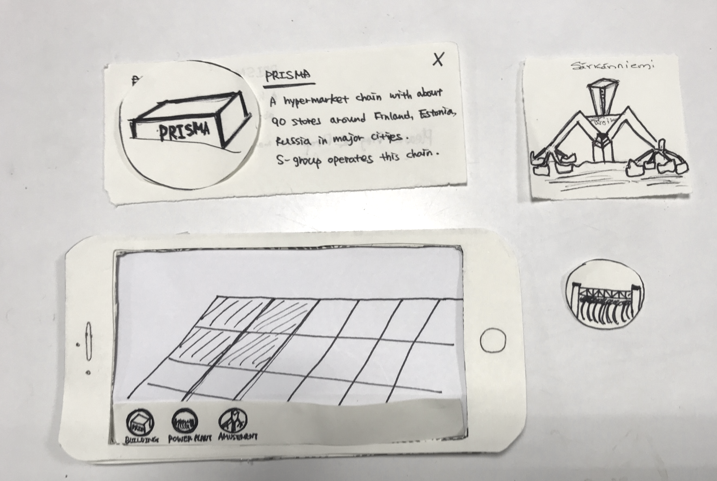 X
PRISMA
PRISMA
A hypermarket chain with about
90 stores around Finland, Estonia,
Russia in major cities.
S-group operates this chain.
Särkänniemi
BUILDING
POWER PLANT
AMUSEMENT